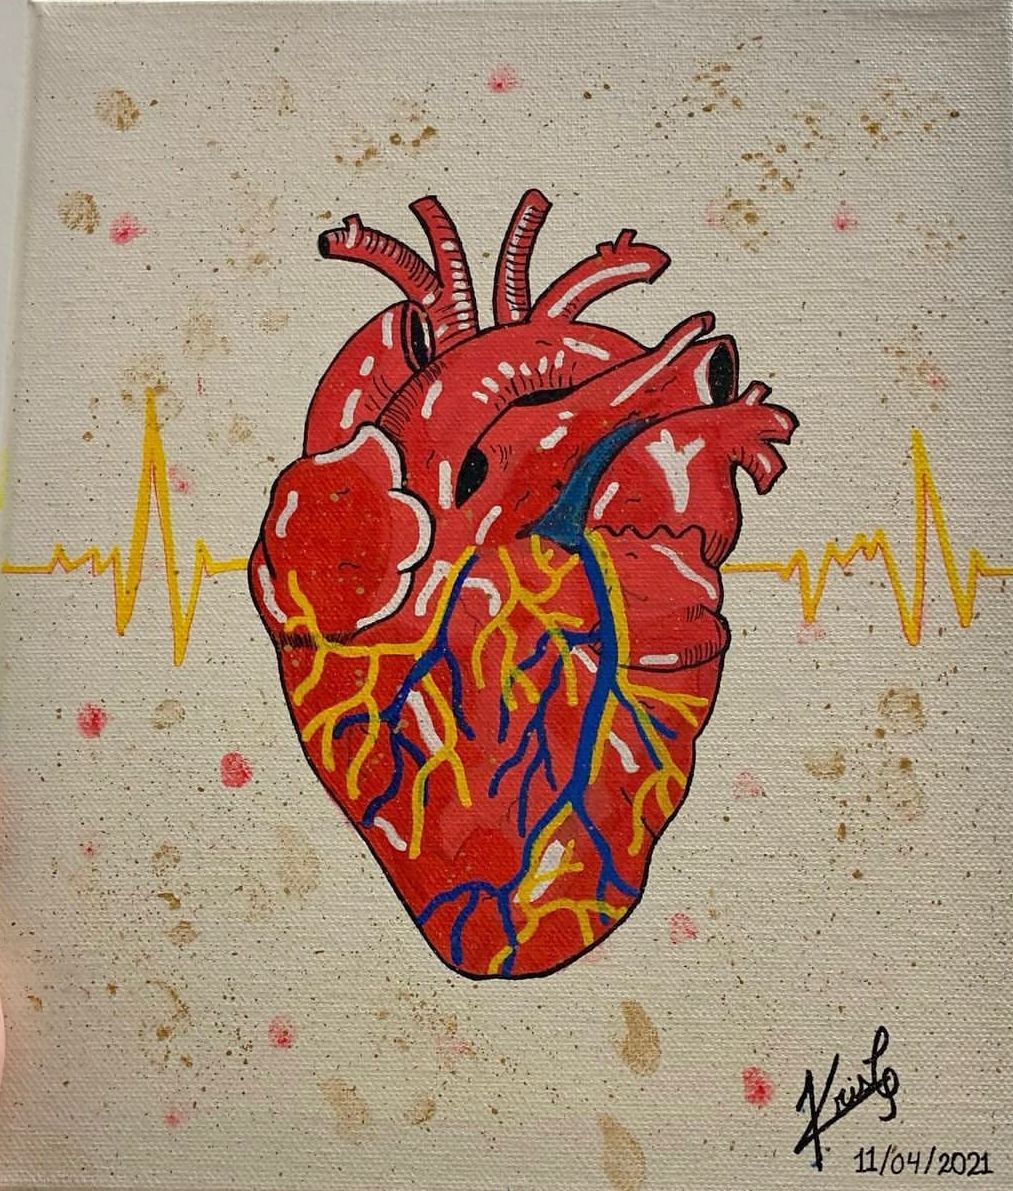 Krisly
11/04/2021